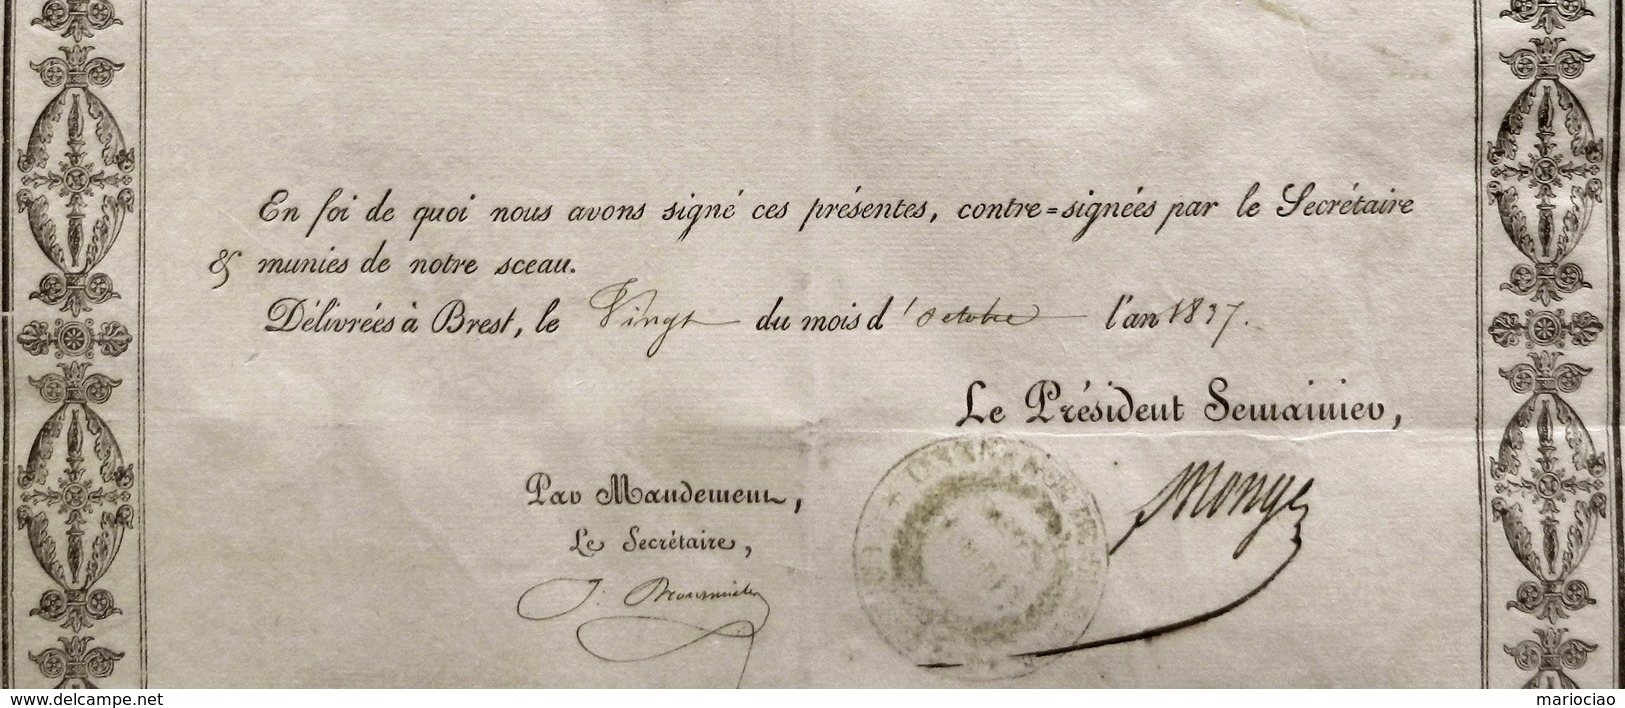 En foi de quoi nous avons signé ces présentes, contre=signées par le Secrétaire
& munies de notre sceau.
Délivrées à Brest, le Vingt du mois d'octobre l'an 1837.
Le Président Semainier,
Par Mandement,
Le Secrétaire,
Monge
J.
delcampe.net
mariociao